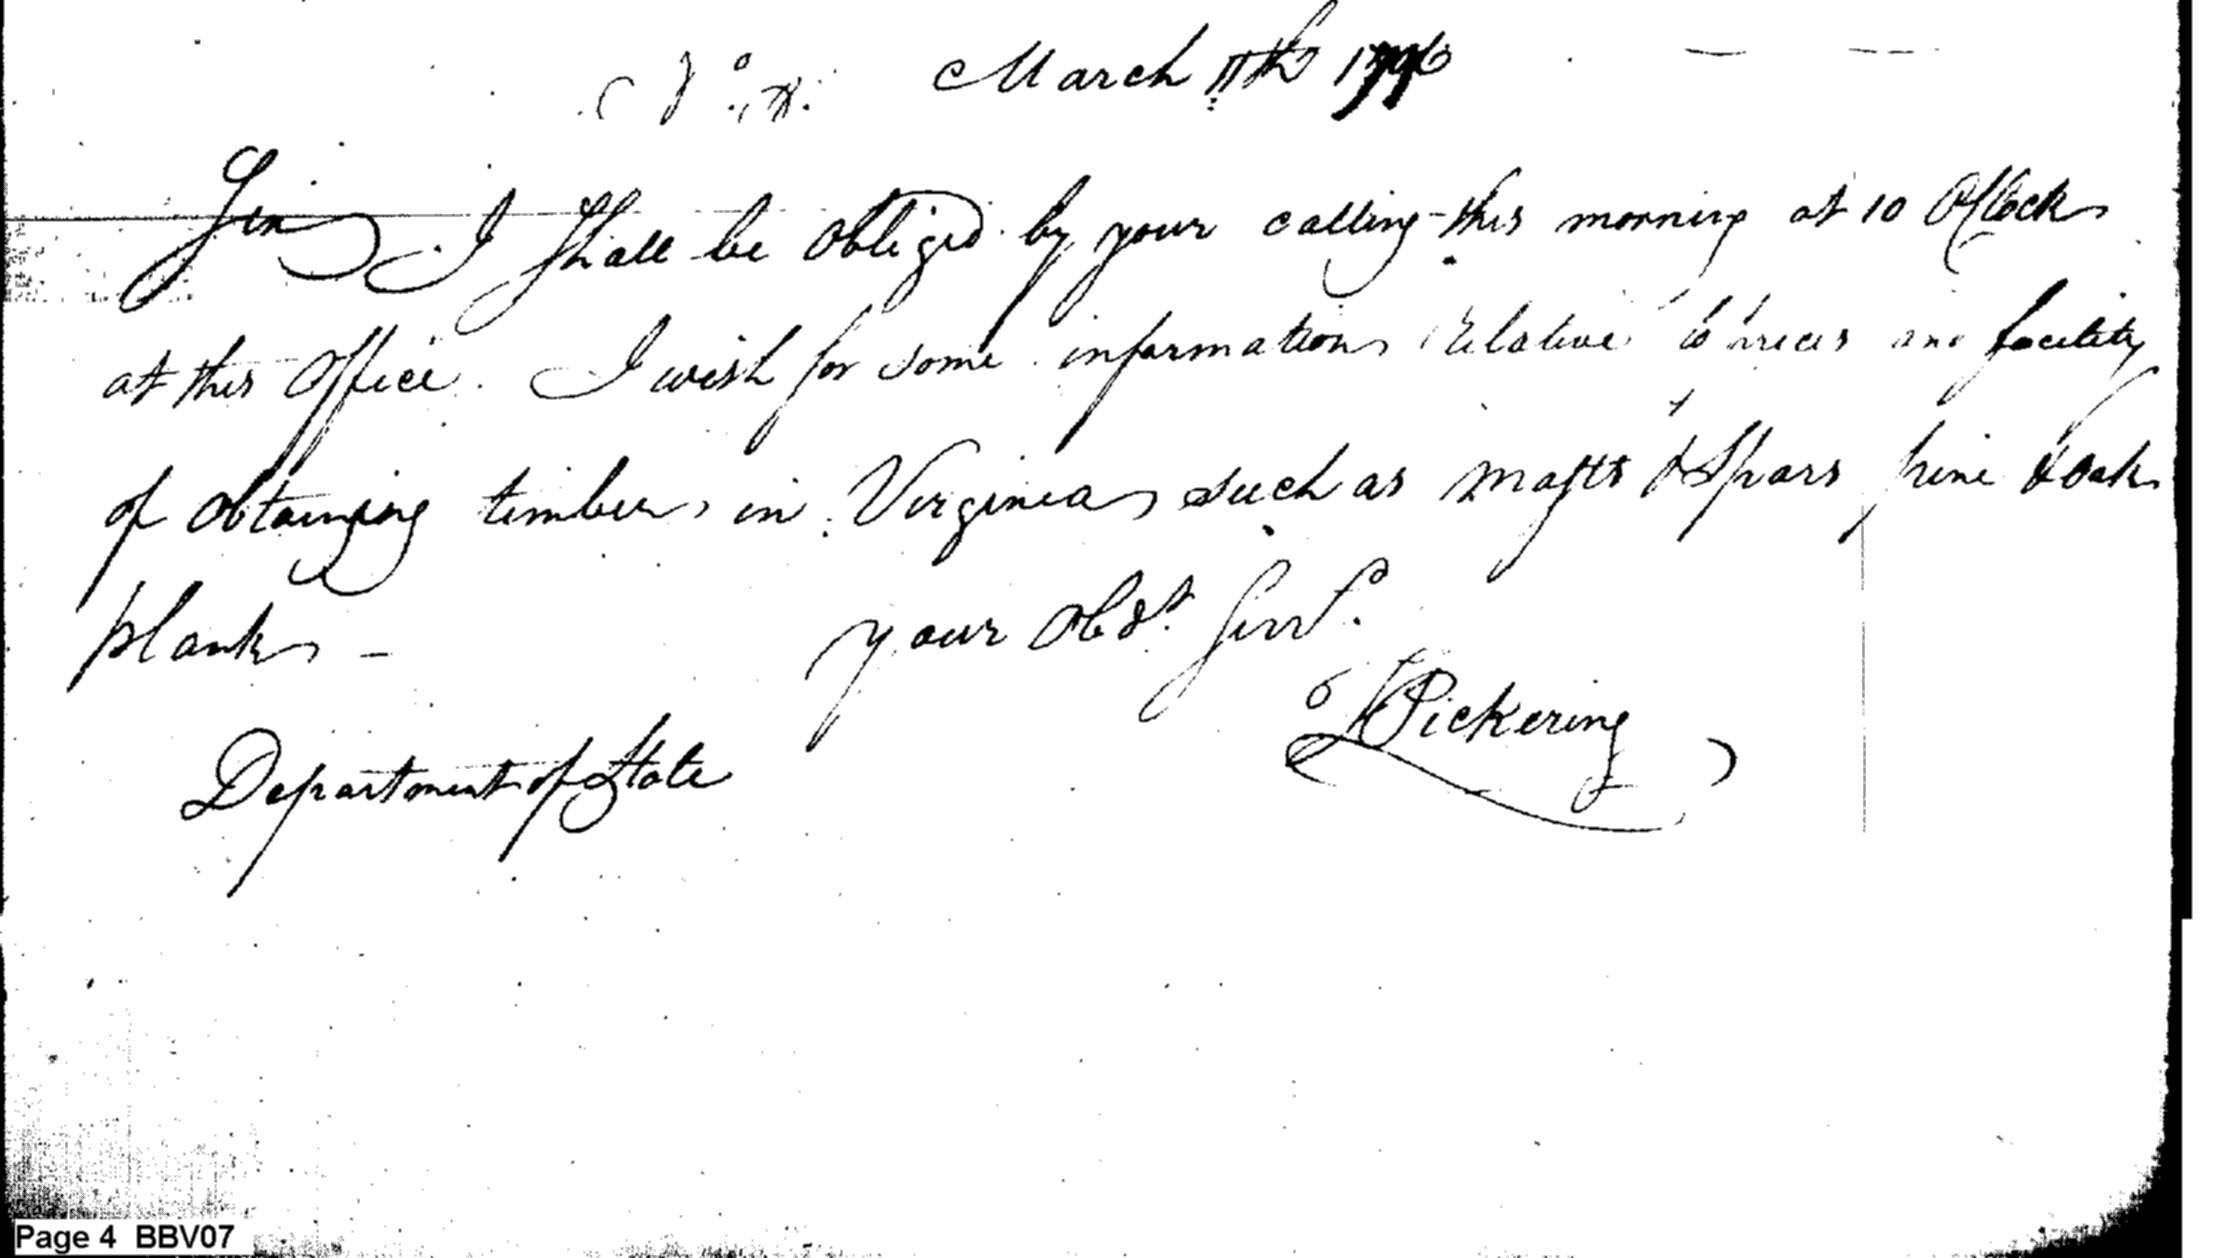 March 11th 1796
Sir I Shall be obliged by your calling this morning at 10 OClock
at this Office. I wish for some information relative to prices and facility
of obtaining timber in Virginia such as Masts & Spars pine & oak
plank -
your Obdt. Servt.
T Pickering
Department of State
Page 4 BBV07